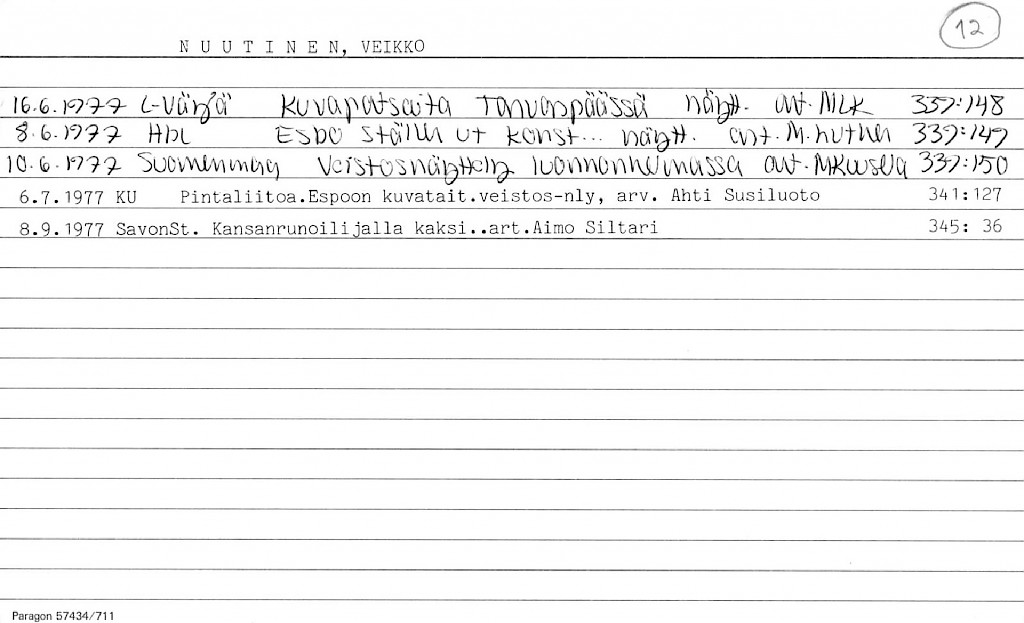 12
N U U T I N E N, VEIKKO
16.6.1977 L-Väylä Kuvapatsaita Tarvaspäässä näytt. art. MLK 339:148
8.6.1977 HBL ESBO ställer ut konst... näytt. art. M. 339:149
10.6.1977 Suomenmaa Veistosnäyttely luonnonhelmassa art. 339:150
6.7.1977 KU Pintaliitoa.Espoon kuvatait.veistos-nly, arv. Ahti Susiluoto 341:127
8.9.1977 SavonSt. Kansanrunoilijalla kaksi..art.Aimo Siltari 345: 36
Paragon 57434/711